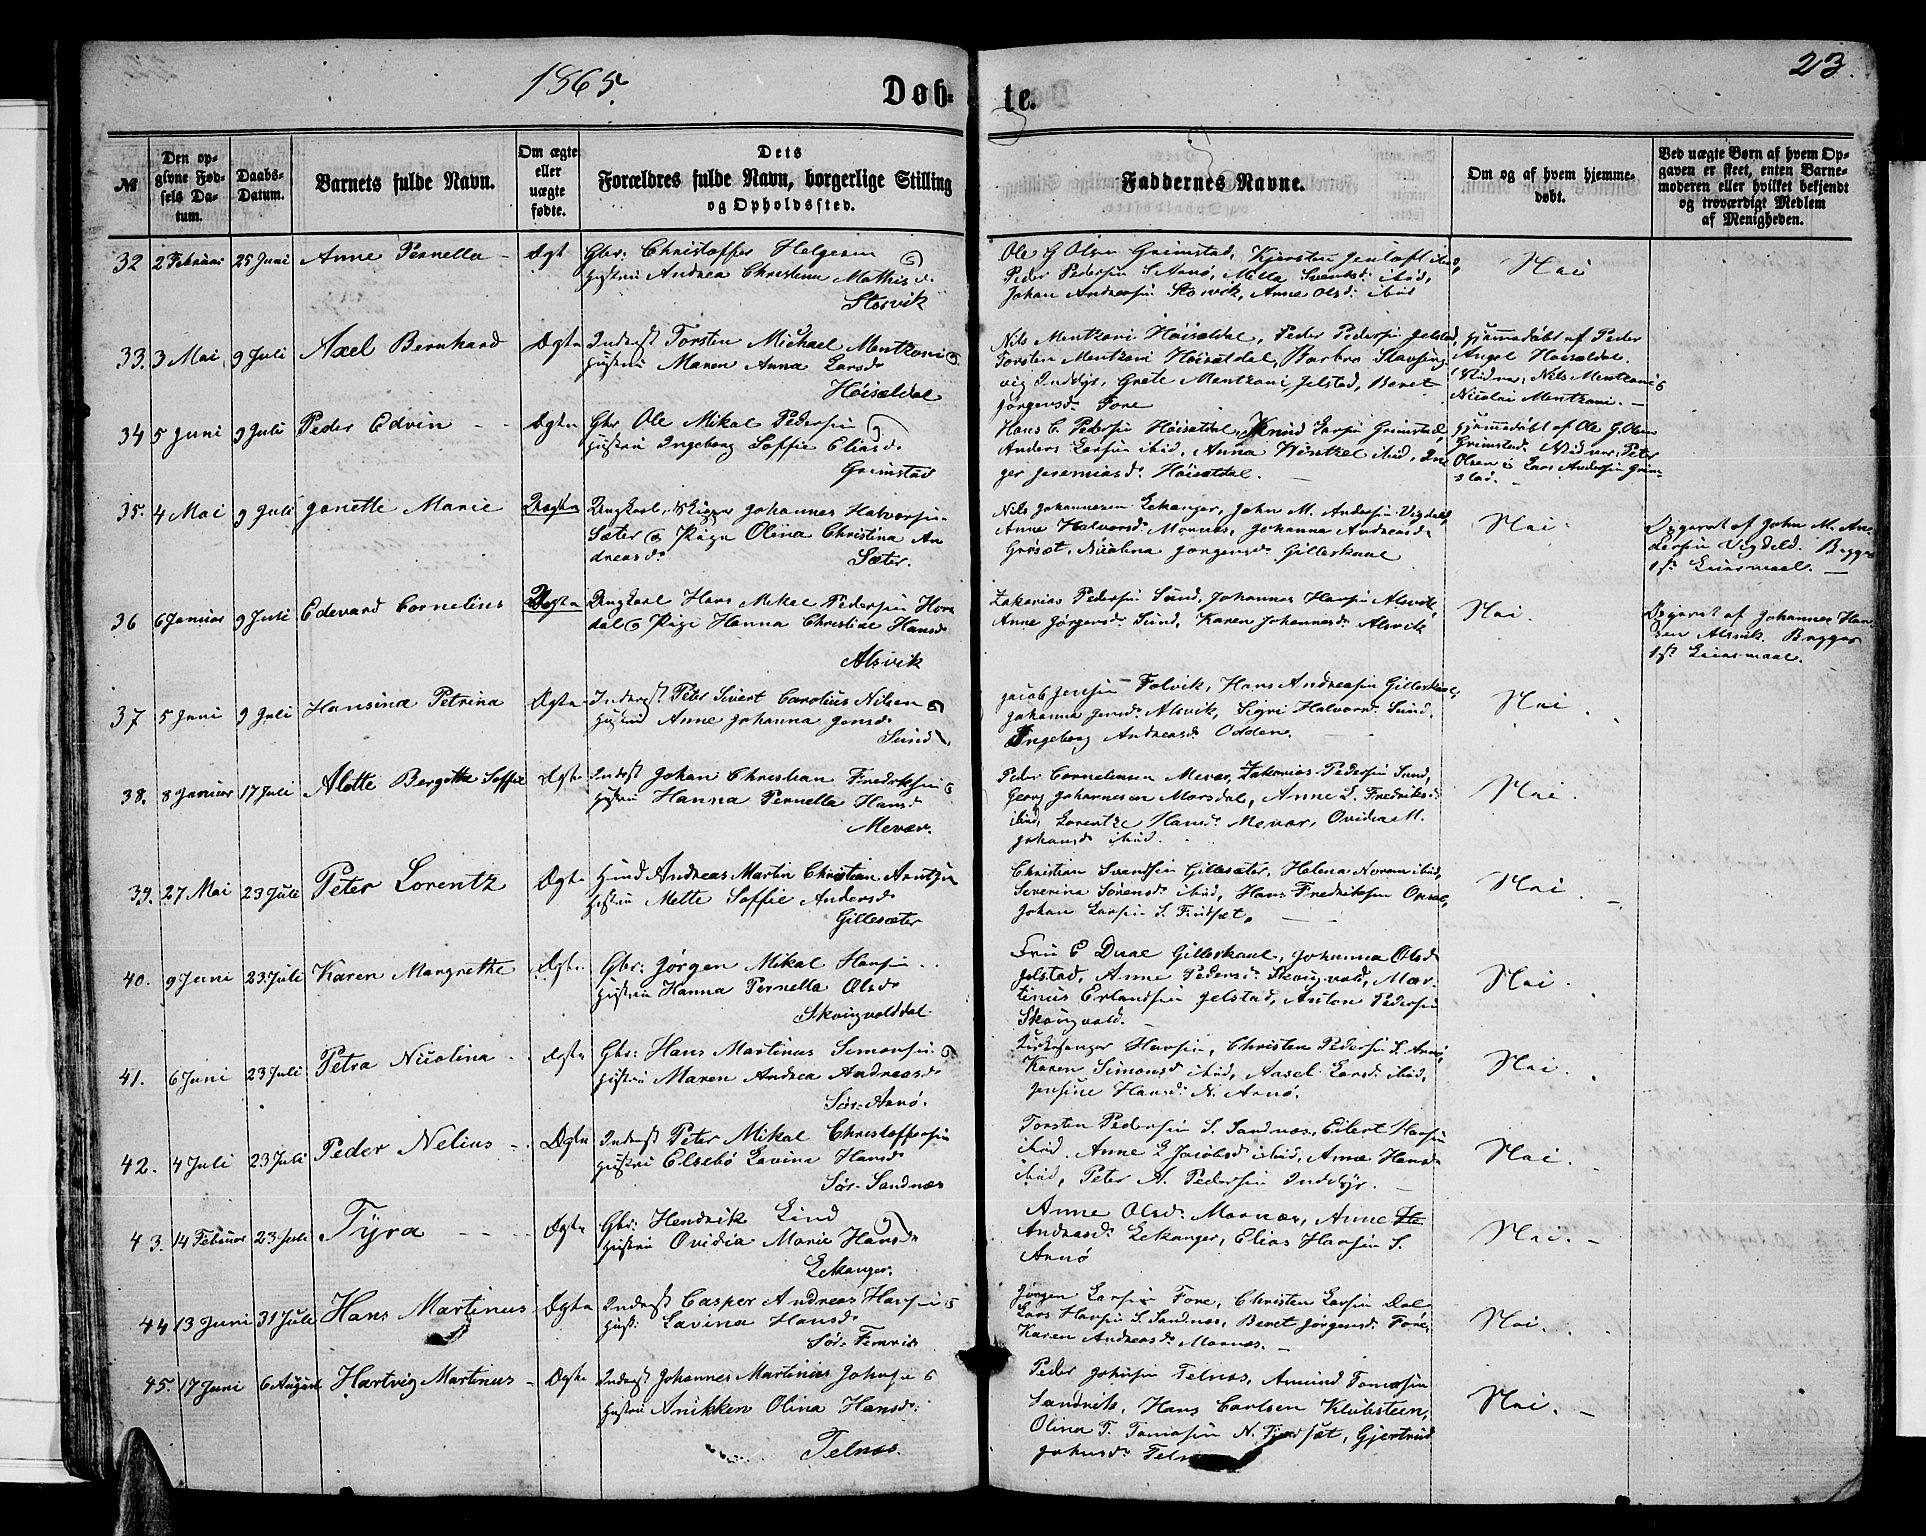 1865.
Døb-
te.
23.
№
Den op-
givne Fød-
sels Da-
tum.
Daabs-
Datum.
Barnets fulde Navn.
Om ægte
eller
uægte
fødte.
Dets
Forældres fulde Navn, borgerlige Stilling
og Opholdssted.
Faddernes Navne.
Om og af hvem hjemme-
døbt.
Ved uægte Børn af hvem Op-
gaven er skeet, enten Barne-
moderen eller hvilket bekjendt
og troværdigt Medlem
af Menigheden.
32 2 Februar 25 Juni Anne Pernella - Ægt
Gbr: Christoffer Helgesen
Hustru Andrea Christina Mathisd.
Storvik
Ole G Olsen Grimstad, Kjersten Jentoft ibid,
Peder Pedersen S. Arnø, Milla Svendsd: ibid,
Johan Andersen Storvik, Anne Olsd: ibid
Nei
33. 3 Mai 9 Juli Axel Bernhard Ægte
Inderst Torsten Michael Mentzoni &
Hustru Maren Anna Larsd
Høiseldal
Nils Mentzoni Høiseldal, Peder Pedersen Jelstad,
Torsten Mentzoni Høiseldal, Barbro Skavsing-
vig Inddyr, Grete Mentzoni Jelstad, Beret
Jørgensd. Fore
Hjemmedøbt af Peder
Angel Høiseldal.
Vidner: Nils Mentzoni &
Nicolai Mentzoni. -
34 5 Juni 9 Juli Peder Edvin - - Ægte
Gbr Ole Mikal Pedersen
Hustru Ingeborg Soffie Eliasd.
Grimstad
Hans C. Pedersen Høiseldal, Knud Larsen Grimstad,
Anders Larsen ibid, Anna Hentzel ibid, In-
ger Jeremiasd. Høiseldal.
Hjemmedøbt af Ole G. Olsen
Grimstad. Vidner: Peter
Olsen & Lars Andersen Grim-
stad.
35. 4 Mai 9 Juli Janette Marie Uægte
Ungkarl, Johannes Halvorsen
Sæter & Pige Olina Christina An
dreasd.
Sæter.
Nils Johannesen Lekanger, John M. Andersen Vigdel,
Anne Halvorsd. Mornes, Johanna Andreasd.
Grøset, Nicolina Jørgensd. Gilleskaal
Nei
Opgivet af John M. An-
dersen Vigdeld. Begges
1ste Leiermaal. -
36 6 Januar 9 Juli Edevard Cornelius Uægte
Ungkarl Hans Mikal Pedersen Hore
dal & Pige Hanna Christine Hansd.
Alsvik
Zakarias Pedersen Sund, Johannes Hansen Alsvik,
Anne Jørgensd. Sund, Karen Johannesd. Alsvik
Nei.
Opgivet af Johannes Han-
sen Alsvik. Begges
1ste Leiermaal.
37 5 Juni 9 Juli Hansina Petrina Ægte
Inderst Peter Sivert Carolius Nilsen &
Hustru Anne Johanna Jensd.
Sund
Jacob Jensen Folvik, Hans Andreasen Gilleskaal,
Johanna Jensd. Alsvik, Sigri Halvorsd. Sund,
Ingeborg Andreasd. Odden.
Nei
38. 8 Januar 17 Juli Alette Bergitte Soffie Ægte
Inderst Johan Christian Fredriksen &
Hustru Hanna Pernella Hansd.
Mevær.
Peder Cornelius Mevær, Zakarias Pedersen Sund,
Georg Johannesen Morsdal, Anne L. Fredriksd.
ibid, Lorentze Hansd. Mevær, Ovidia M.
Johansd. ibid.
Nei
39. 27 Mai 23 Juli Peter Lorentz Ægte
Huusmd Andreas Martin Christian Arntzen
Hustru Mette Soffie Andersd.
Gillesæter
Christian Svendsen Gillesæter, Helena Norum ibid,
Severina Sørensd. ibid, Hans Fredriksen Opsal,
Johan Larsen S. Finsæt.
Nei
40. 9 Juni 23 Juli Karen Margrethe Ægte
Gbr: Jørgen Mikal Hansen
Hustru Hanna Pernella Olsd.
Skougvolddal
Fru C Duae Gilleskaal, Johanna Olsd.
Jelstad, Anne Pedersd. Skougvold, Mar-
tinus Erlandsen Jelstad, Anton Pedersen
Skougvold.
Nei.
41. 6 Juni 23 Juli Petra Nicolina - Ægte
Gbr: Hans Martinus Simonsen &
Hustru Maren Andrea Andreasd.
Sør-Arnø.
Kirkesanger Hansen, Christen Pedersen S. Arnø,
Karen Simonsd. ibid, Aasel Larsd. ibid,
Jensine Hansd. N. Arnø.
Nei.
42. 4 Juli 23 Juli Peder Nelius - Ægte
Inderst Peter Mikal Christoffersen
Hustru Elsebø Lavina Hansd.
Sør-Sandnæs
Torsten Pedersen S. Sandnæs, Eilert Hansen
ibid, Anne L Jacobsd. ibid, Anne Hansd.
ibid, Peter A. Pedersen Inddyr. -
Nei.
43. 14 Februar 23 Juli Tyra - - - Ægte
Gbr: Hendrik Lind
Hustru Ovidia Marie Hansd.
Lekanger.
Anne Olsd. Mornes, Anne
Andreasd. Lekanger, Elias Hansen S.
Arnø
Nei. -
44 13 Juni 31 Juli Hans Martinus Ægte
Inderst Casper Andreas Hansen &
Hustr: Lavina Hansd.
Sør-Femris
Jørgen Larsen Fore, Christen Larsen Dal
Lars Hansen S. Sandnæs, Beret Jørgensd. Fore,
Karen Andreasd. Mornes. -
Nei.
45. 17 Juni 6 August Hartvig Martinus - Ægte
Inderst Johannes Martinus Johnsen &
Hustru Anikken Olina Hansd.
Telnes.
Peder Johnsen Telnes, Amund Tomasen
Sandvik, Hans Carlsen Klubsteen,
Olina F. Tomasen N. Finsæt, Gjertrud
Johnsd. Teln
Nei. -